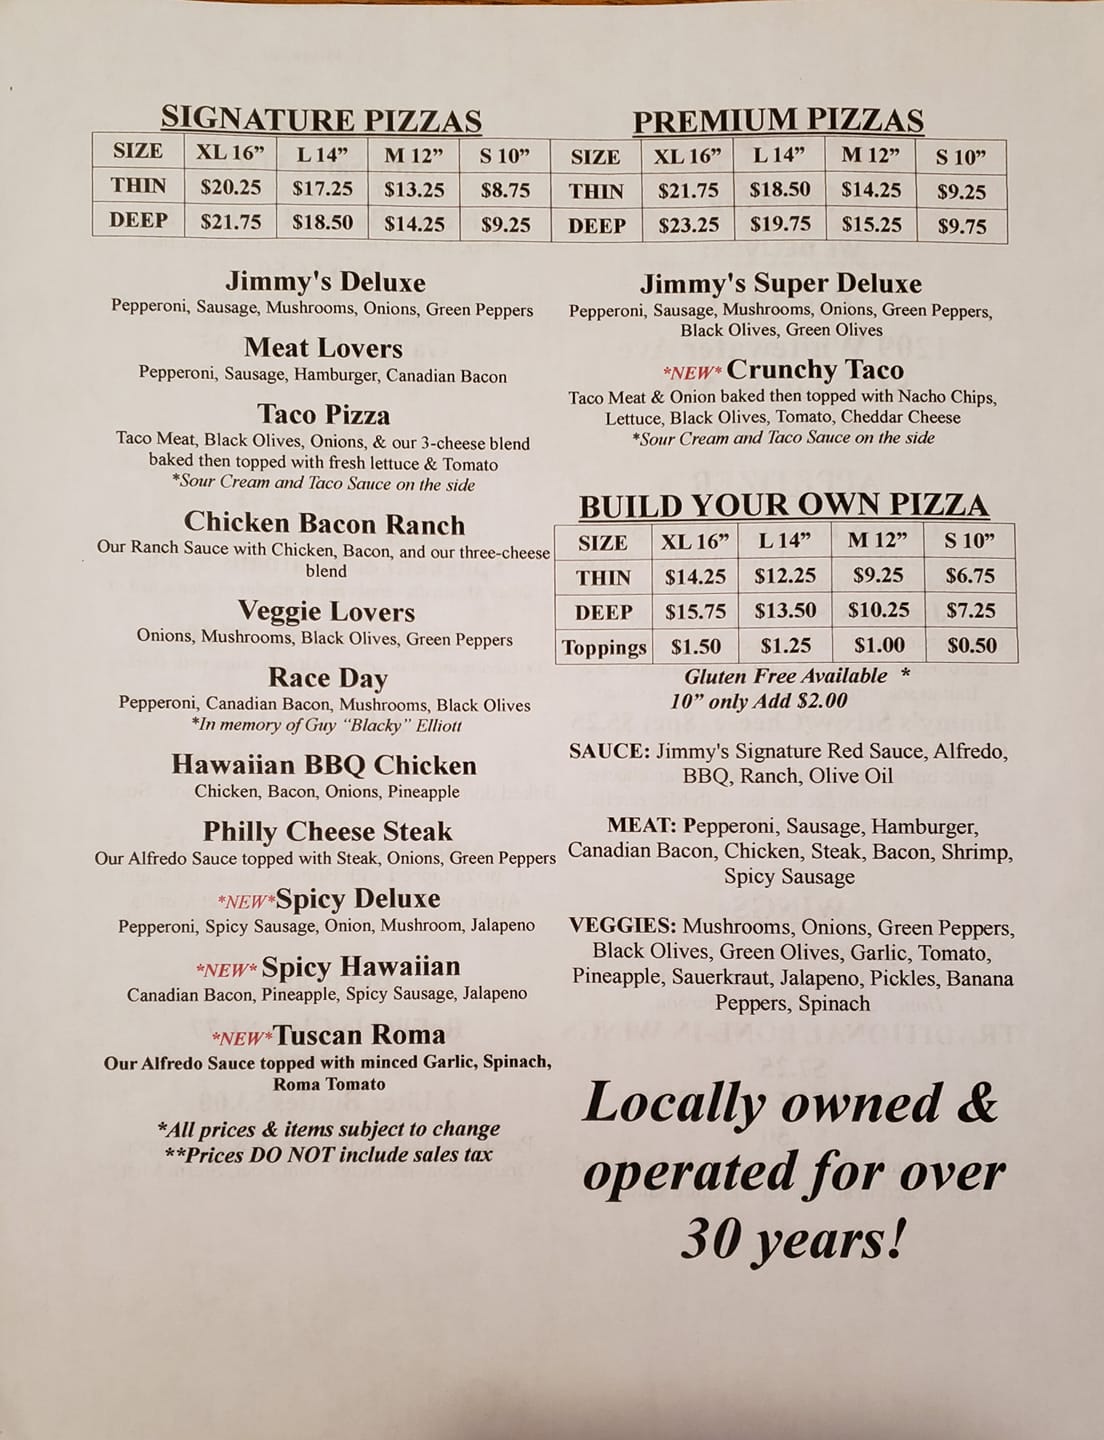 SIGNATURE PIZZAS
SIZE XL 16” L 14” M 12” S 10”
THIN $20.25 $17.25 $13.25 $8.75
DEEP $21.75 $18.50 $14.25 $9.25
Jimmy's Deluxe
Pepperoni, Sausage, Mushrooms, Onions, Green Peppers
Meat Lovers
Pepperoni, Sausage, Hamburger, Canadian Bacon
Taco Pizza
Taco Meat, Black Olives, Onions, & our 3-cheese blend
baked then topped with fresh lettuce & Tomato
*Sour Cream and Taco Sauce on the side
Chicken Bacon Ranch
Our Ranch Sauce with Chicken, Bacon, and our three-cheese
blend
Veggie Lovers
Onions, Mushrooms, Black Olives, Green Peppers
Race Day
Pepperoni, Canadian Bacon, Mushrooms, Black Olives
*In memory of Guy “Blacky” Elliott
Hawaiian BBQ Chicken
Chicken, Bacon, Onions, Pineapple
Philly Cheese Steak
Our Alfredo Sauce topped with Steak, Onions, Green Peppers
*NEW*Spicy Deluxe
Pepperoni, Spicy Sausage, Onion, Mushroom, Jalapeno
*NEW* Spicy Hawaiian
Canadian Bacon, Pineapple, Spicy Sausage, Jalapeno
*NEW*Tuscan Roma
Our Alfredo Sauce topped with minced Garlic, Spinach,
Roma Tomato
*All prices & items subject to change
**Prices DO NOT include sales tax
PREMIUM PIZZAS
SIZE XL 16” L 14” M 12” S 10”
THIN $21.75 $18.50 $14.25 $9.25
DEEP $23.25 $19.75 $15.25 $9.75
Jimmy's Super Deluxe
Pepperoni, Sausage, Mushrooms, Onions, Green Peppers,
Black Olives, Green Olives
*NEW* Crunchy Taco
Taco Meat & Onion baked then topped with Nacho Chips,
Lettuce, Black Olives, Tomato, Cheddar Cheese
*Sour Cream and Taco Sauce on the side
BUILD YOUR OWN PIZZA
SIZE XL 16” L 14” M 12” S 10”
THIN $14.25 $12.25 $9.25 $6.75
DEEP $15.75 $13.50 $10.25 $7.25
Toppings $1.50 $1.25 $1.00 $0.50
Gluten Free Available *
10” only Add $2.00
SAUCE: Jimmy's Signature Red Sauce, Alfredo,
BBQ, Ranch, Olive Oil
MEAT: Pepperoni, Sausage, Hamburger,
Canadian Bacon, Chicken, Steak, Bacon, Shrimp,
Spicy Sausage
VEGGIES: Mushrooms, Onions, Green Peppers,
Black Olives, Green Olives, Garlic, Tomato,
Pineapple, Sauerkraut, Jalapeno, Pickles, Banana
Peppers, Spinach
Locally owned &
operated for over
30 years!